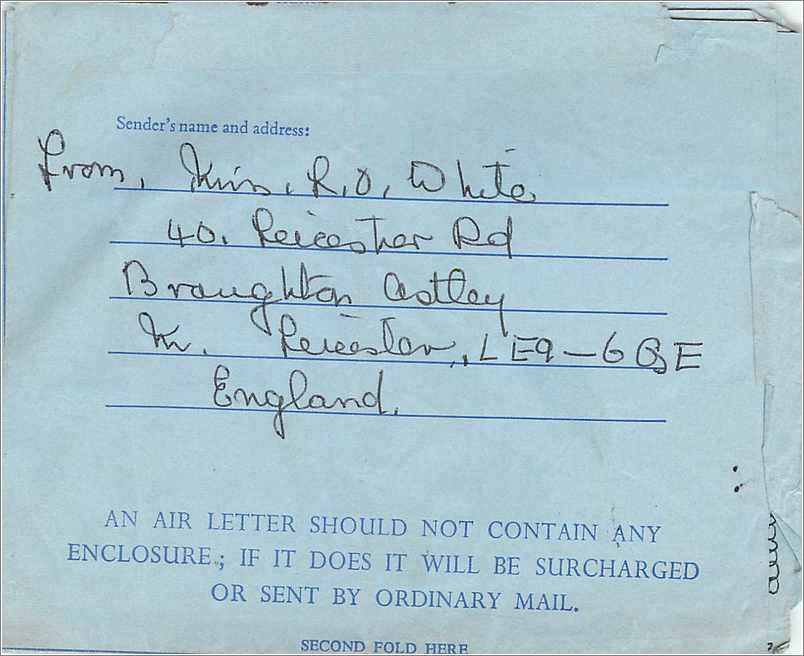 Sender's name and address:
From, Miss. R, O, White
40. Leicester Rd
Braughton Astley
Nr. Leicester, LE9-6QE
England.
AN AIR LETTER SHOULD NOT CONTAIN ANY
ENCLOSURE; IF IT DOES IT WILL BE SURCHARGED
OR SENT BY ORDINARY MAIL.
SECOND FOLD HERE